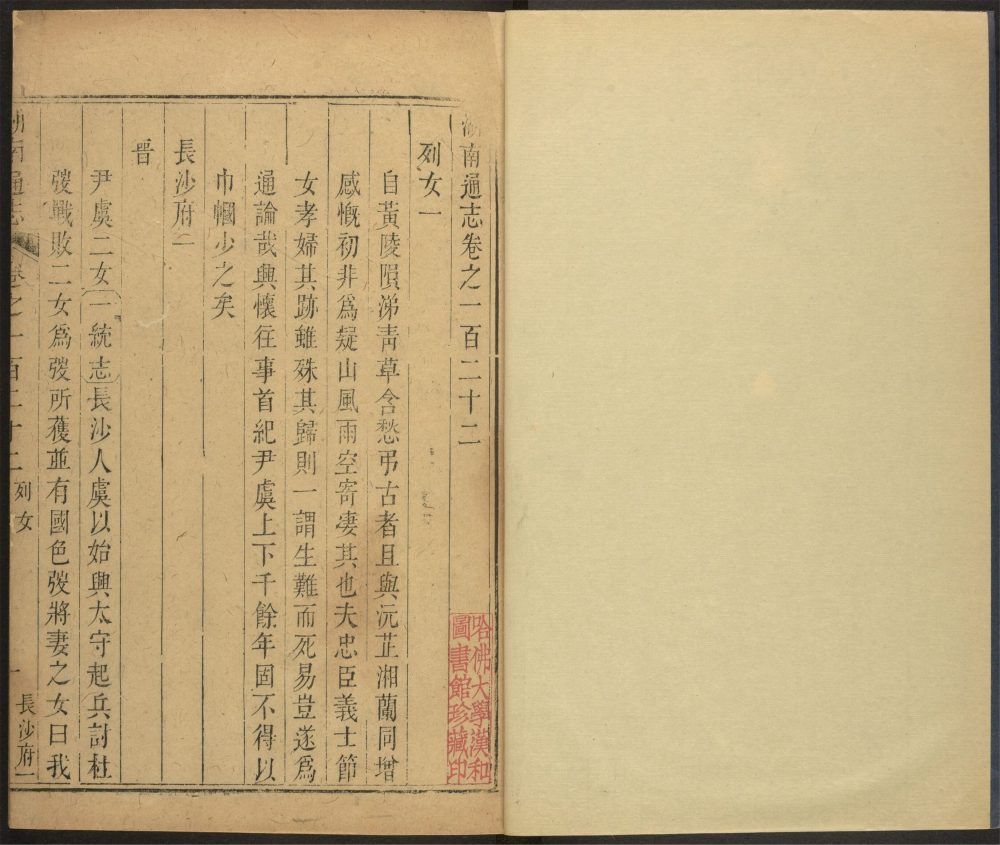 湖南通志卷之一百二十二
列女一
自黃陵隕涕靑草含愁弔古者且與沅芷湘蘭同增
感慨初非爲疑山風雨空寄凄其也夫忠臣義士節
女孝婦其跡雖殊其歸則一謂生難而死易豈遂爲
通論哉興懷往事首紀尹虞上下千餘年固不得以
巾幗少之矣
長沙府一
晋
尹虞二女一統志長沙人虞以始興太守起兵討杜
弢戰敗二女爲弢所獲並有國色弢將妻之女曰我
湖南通志 卷之一百二十二 列女 一 長沙府一
哈佛大學漢和
圖書館珍藏印